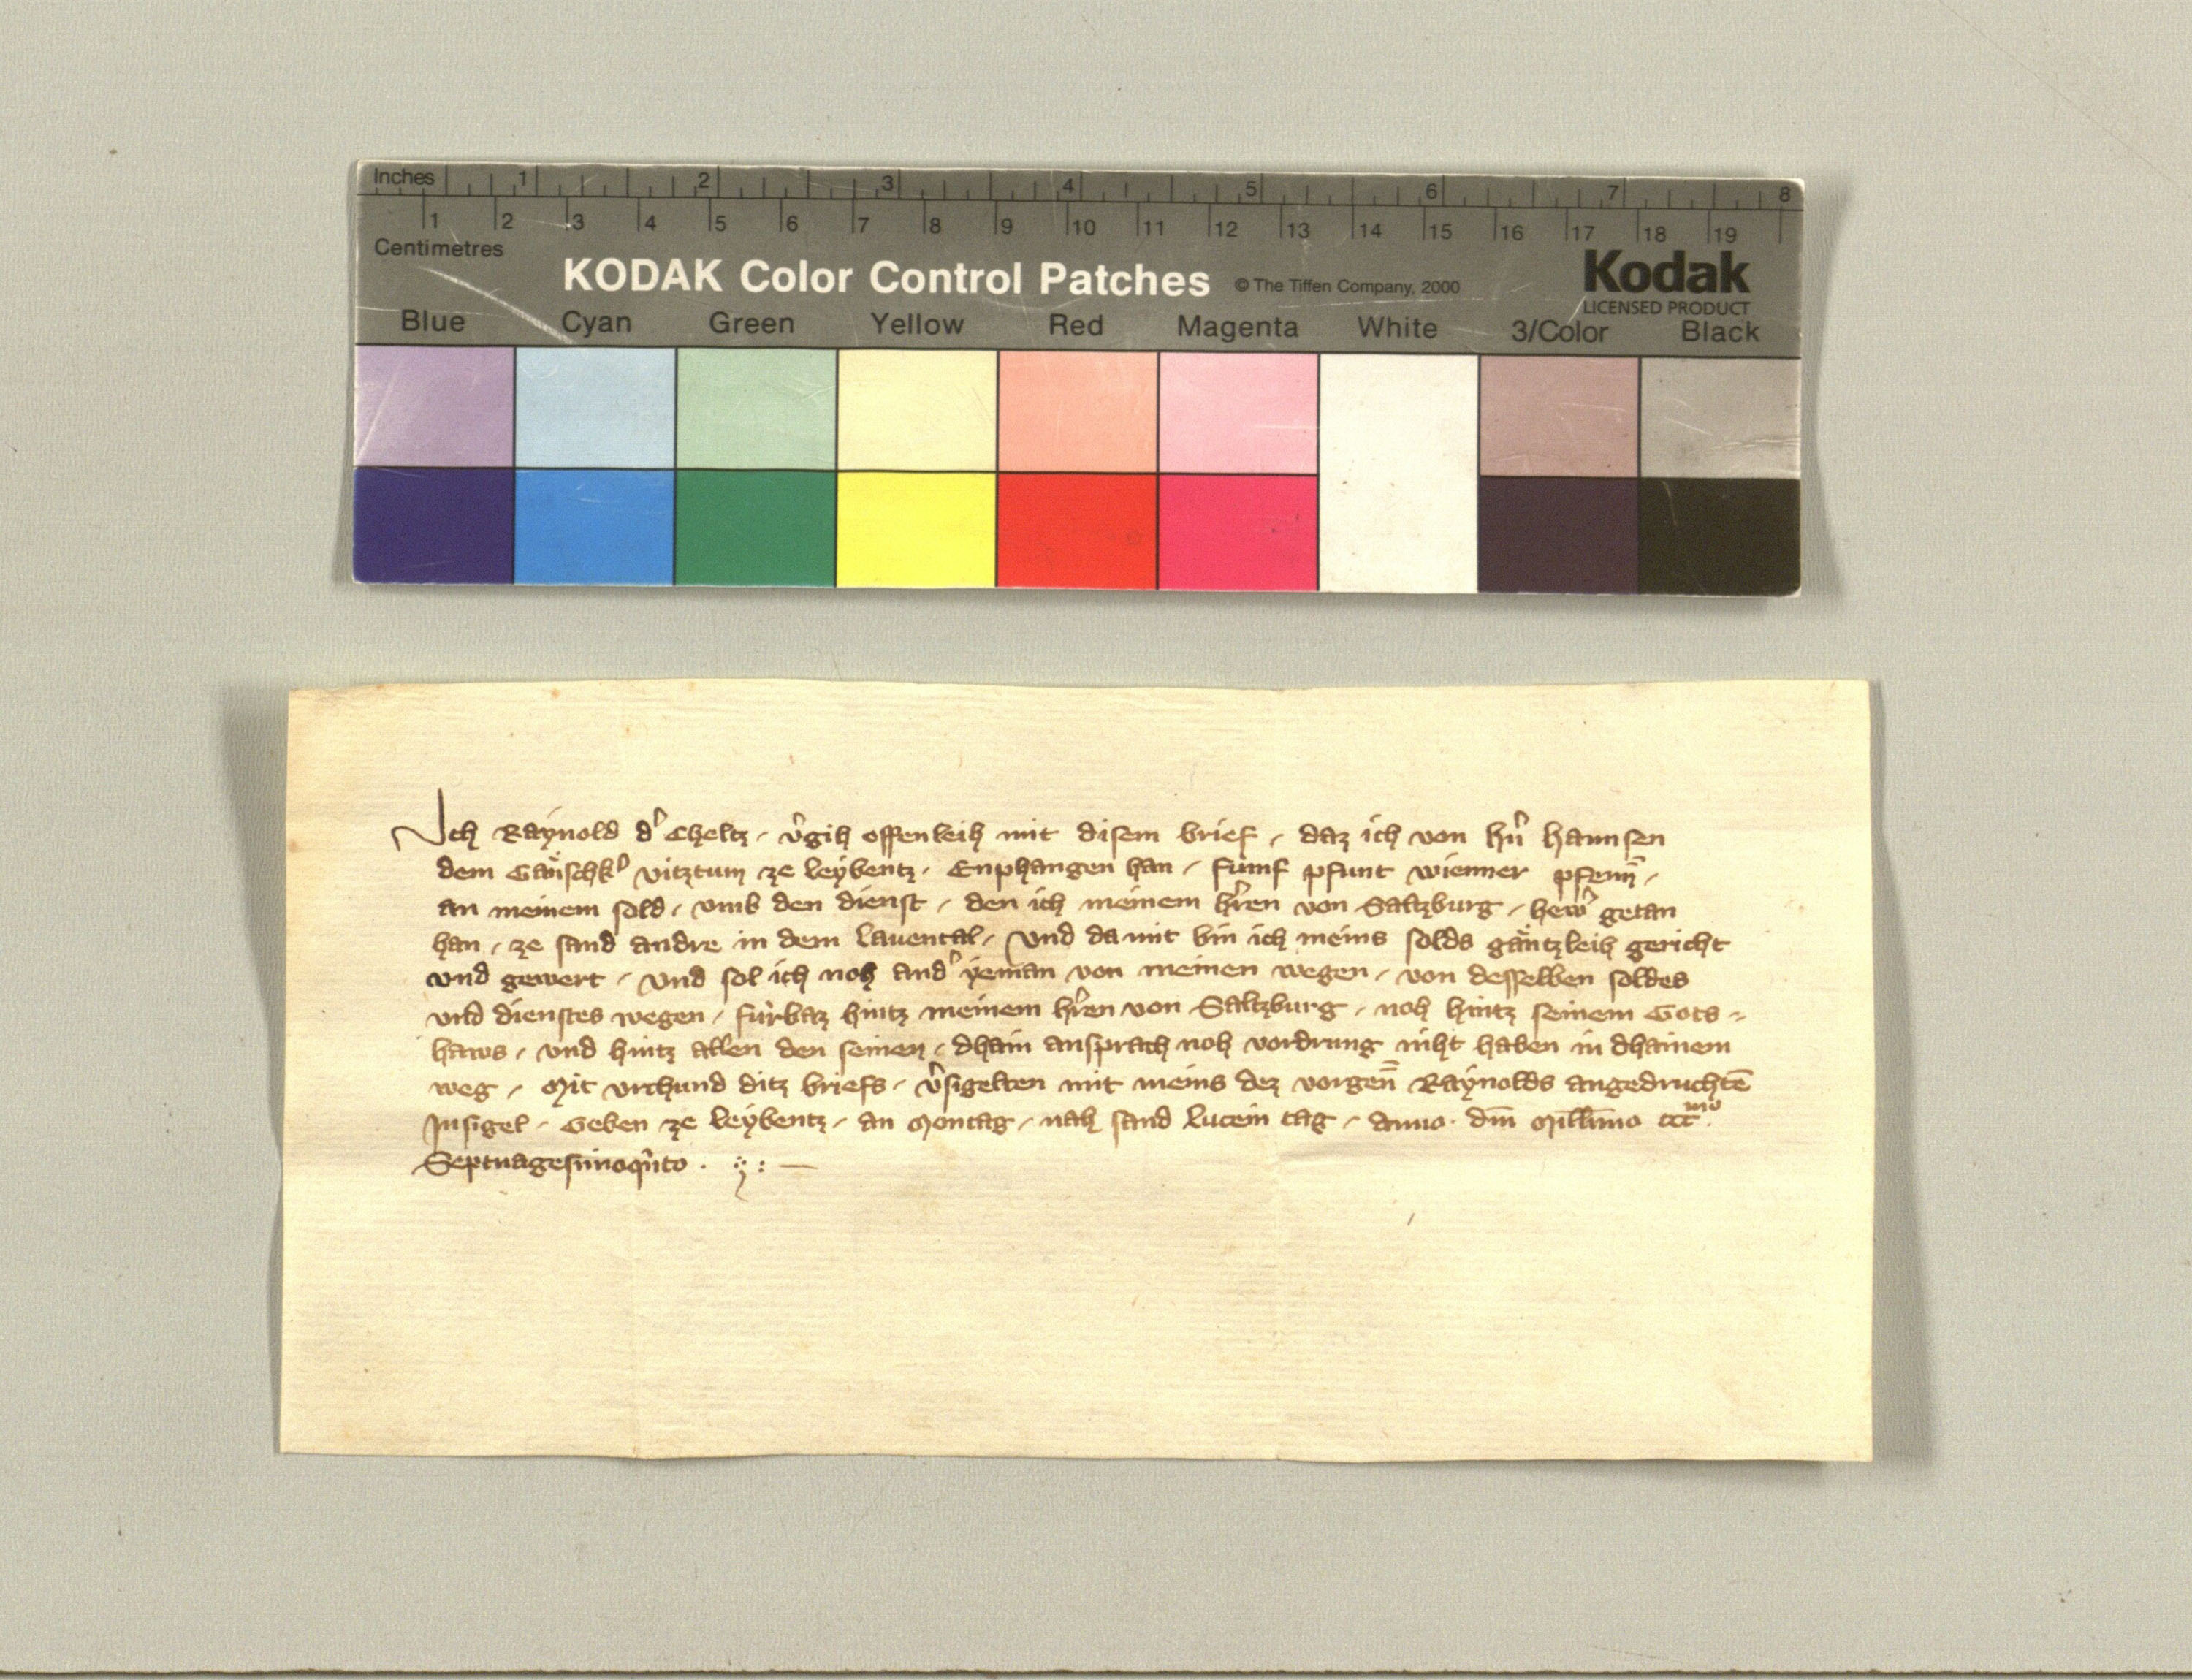 Inches 1 2 3 4 5 6 7 8
1 2 3 4 5 6 7 8 9 10 11 12 13 14 15 16 17 18 19
Centimetres
KODAK Color Control Patches © The Tiffen Company, 2000 Kodak
LICENSED PRODUCT
Blue Cyan Green Yellow Red Magenta White 3/Color Black
Ich Raynold d' Cheltz, v'gih offenleih mit disem brief, daz ich von h'n hannsen
dem vitztum ze leybentz, Enphangen han, fumf pfunt wienner pfenn̄,
an meinem sold, vmb den dienst, den ich meinem h'ren von Saltzburg, hew' getan
han, ze sand andre in dem lauental, Vnd da mit bin ich meins solds gäntzleih gericht
vnd gewert, Vnd sol ich noh and' yeman von meinen wegen, von desselben soldes
vnd dienstes wegen, fürbaz hintz meinem h'ren von Saltzburg, noh hintz seinem Gots-
haws, vnd hintz allen den seinen, dhain ansprach noh vordrung niht haben in dhainem
weg, Mit vrchund ditz briefs, v'sigelten mit meins dez vorgen̄ Raynolds angedruchtē
Insigel, Geben ze leybentz, an Montag, nah sand lucein tag, Anno dm̄ Mill̄imo ccc^mo
Septuagesimoq'nto.